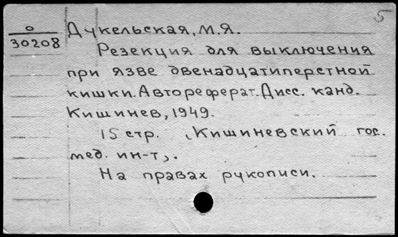 5
О
30208
Дукельская, М.Я.
Резекция для выключения
при язве двенадцатиперстной
кишки. Автореферат. Дисс. канд.
Кишинев, 1949.
15 стр. (Кишиневский гос.
мед. ин-т).
На правах рукописи.